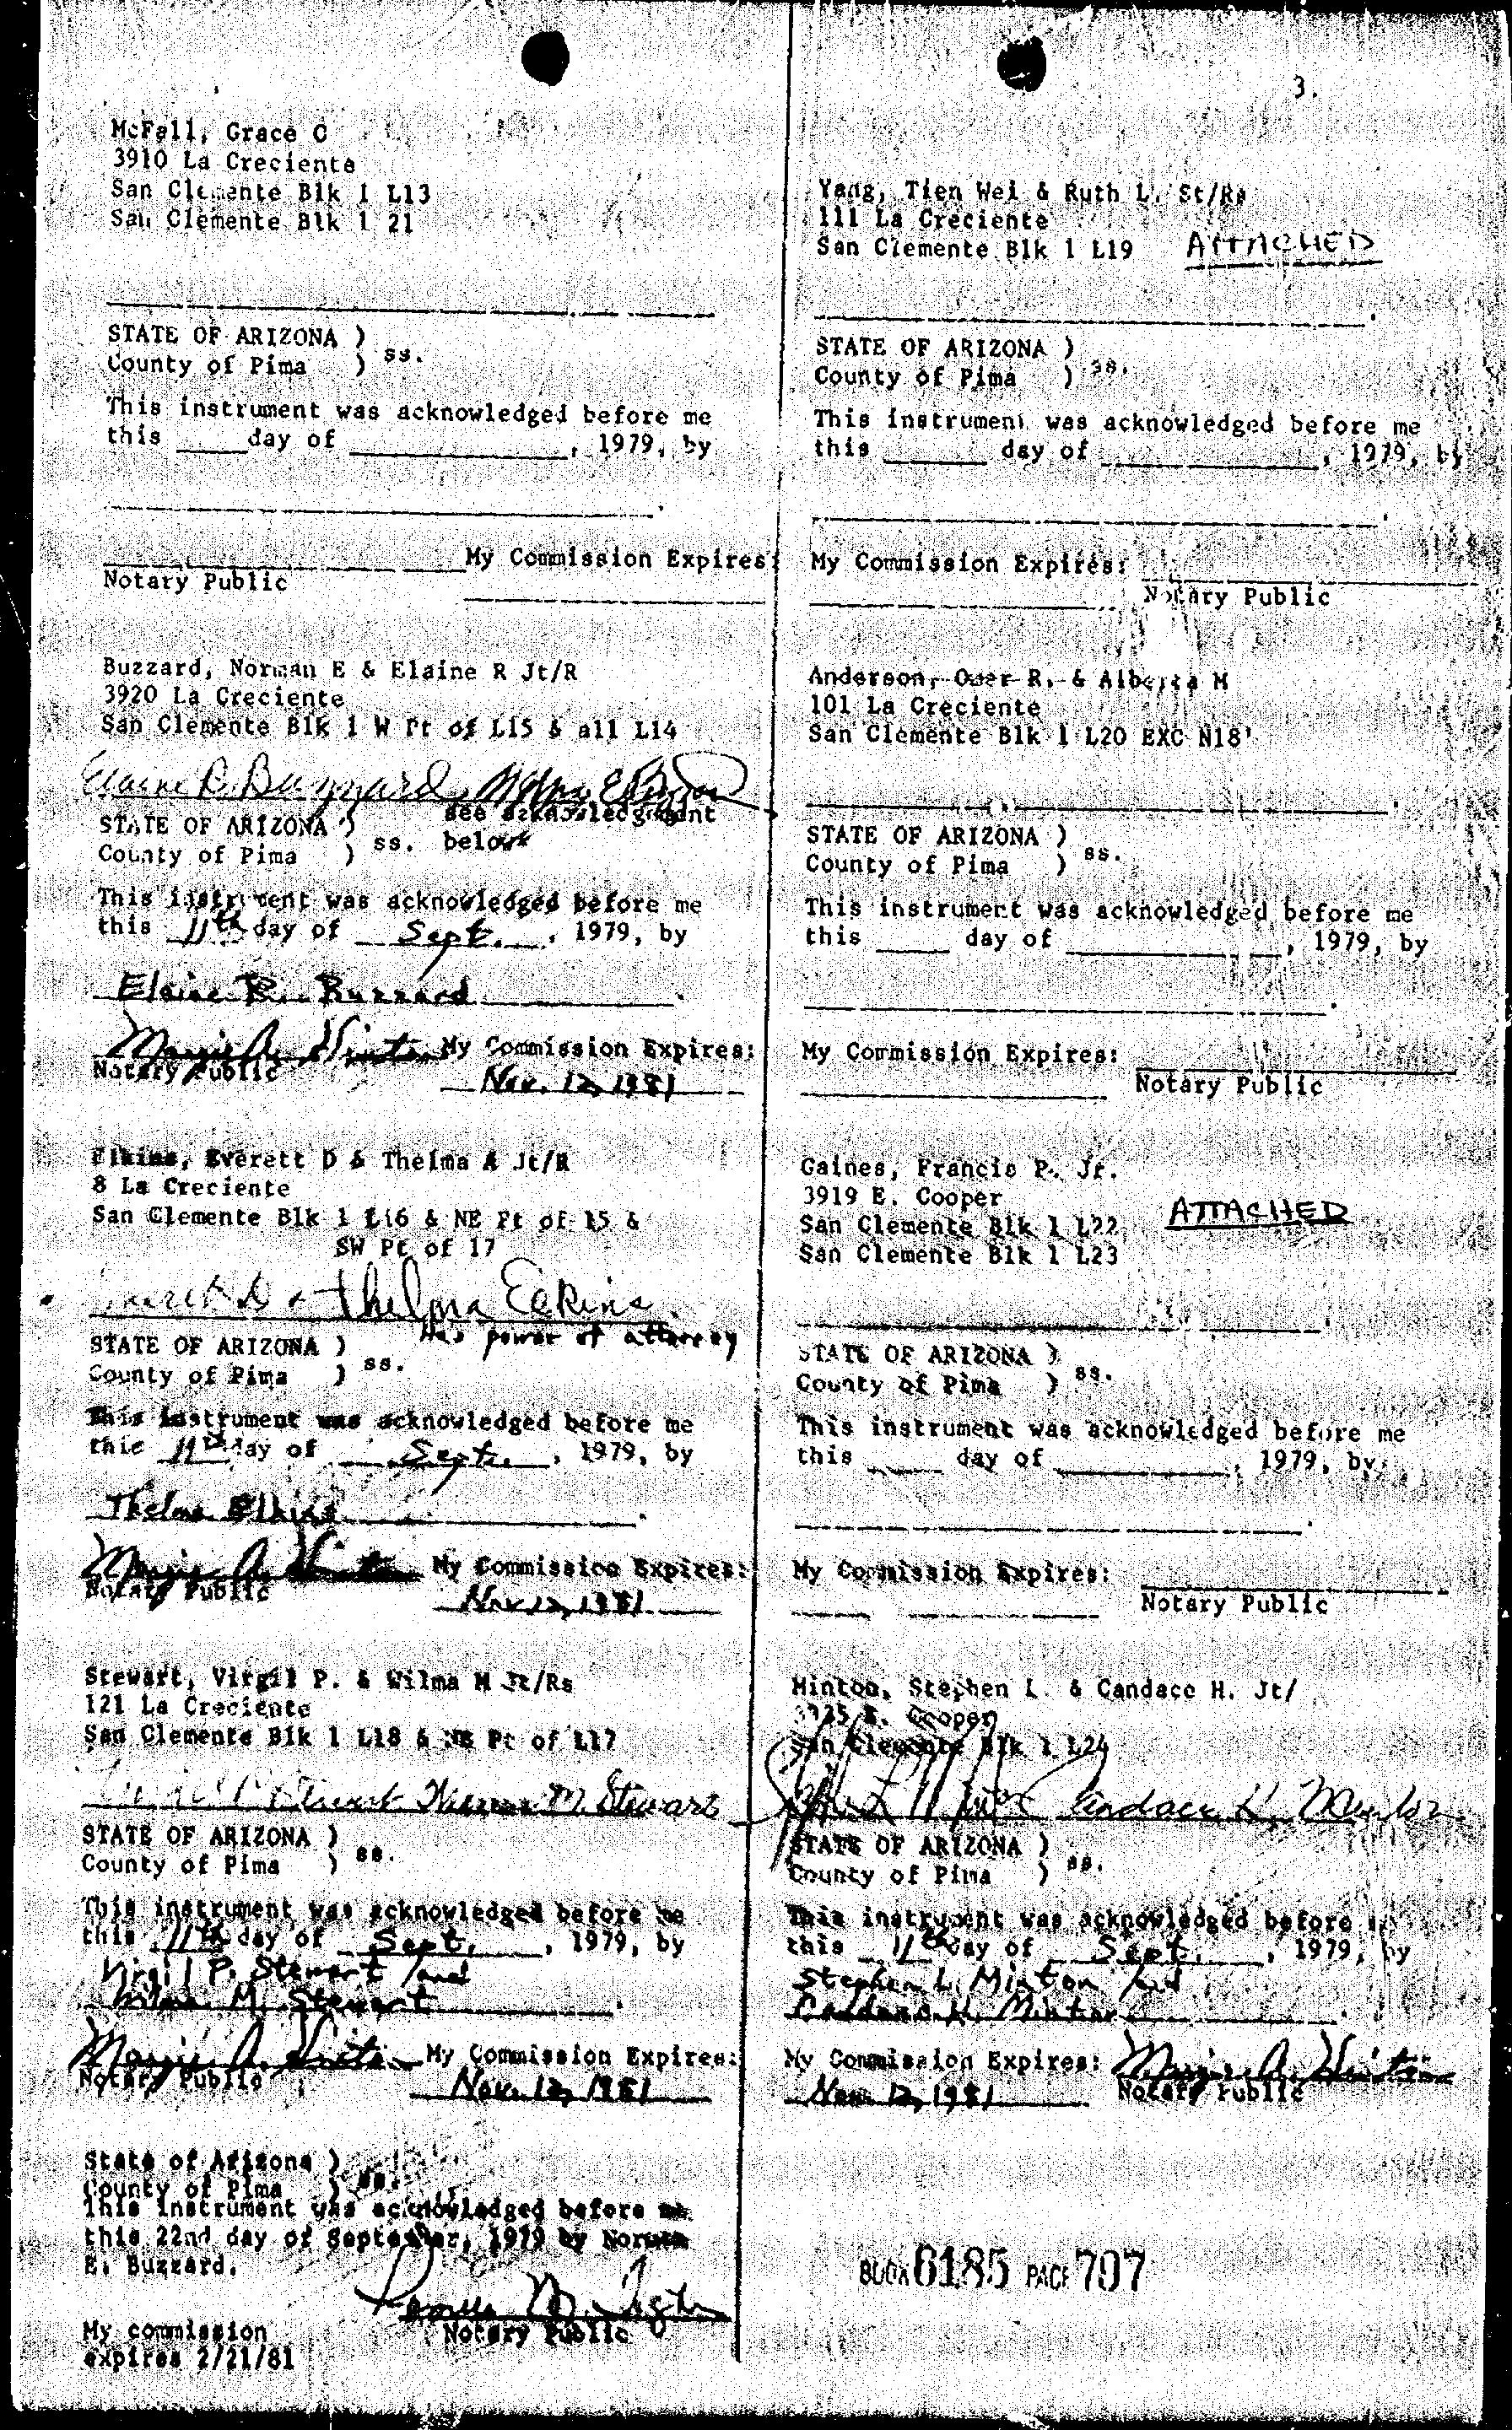 3.
McFall, Grace C
3910 La Creciente
San Clemente Blk 1 L13
San Clemente Blk 1 21
STATE OF ARIZONA )
County of Pima ) ss.
This instrument was acknowledged before me
this ____ day of ____________, 1979, by
My Commission Expires:
Notary Public
Buzzard, Norman E & Elaine R Jt/R
3920 La Creciente
San Clemente Blk 1 W Pt of L15 & all L14
Elaine R. Buzzard
see acknowledgment
STATE OF ARIZONA )
County of Pima ) ss. below
This instrument was acknowledged before me
this 11th day of Sept., 1979, by
Elaine R. Buzzard
My Commission Expires:
Notary Public
Nov. 12, 1981
Elkins, Everett D & Thelma A Jt/R
8 La Creciente
San Clemente Blk 1 L16 & NE Pt of 15 &
SW Pt of 17
Everett D & Thelma Elkins
Has power of attorney
STATE OF ARIZONA )
County of Pima ) ss.
This instrument was acknowledged before me
this 11th day of Sept., 1979, by
Thelma Elkins
My Commission Expires:
Notary Public
Nov 12, 1981
Stewart, Virgil P. & Wilma M Jt/Rs
121 La Creciente
San Clemente Blk 1 L18 & NE Pt of L17
Virgil P. Stewart Wilma M. Stewart
STATE OF ARIZONA )
County of Pima ) ss.
This instrument was acknowledged before me
this 11th day of Sept., 1979, by
Virgil P. Stewart and
Wilma M. Stewart
My Commission Expires:
Notary Public
Nov. 12, 1981
State of Arizona )
County of Pima ) ss.
This instrument was acknowledged before me
this 22nd day of September, 1979 by Norman
E. Buzzard.
Notary Public
My commission
expires 2/21/81
Yang, Tien Wei & Ruth L. St/Rs
111 La Creciente
San Clemente Blk 1 L19 ATTACHED
STATE OF ARIZONA )
County of Pima ) ss.
This instrument was acknowledged before me
this ____ day of ____________, 1979, by
My Commission Expires:
Notary Public
Anderson, Omer R. & Alberta M
101 La Creciente
San Clemente Blk 1 L20 EXC N18'
STATE OF ARIZONA )
County of Pima ) ss.
This instrument was acknowledged before me
this ____ day of ____________, 1979, by
My Commission Expires:
Notary Public
Gaines, Francis P. Jr.
3919 E. Cooper
San Clemente Blk 1 L22 ATTACHED
San Clemente Blk 1 L23
STATE OF ARIZONA )
County of Pima ) ss.
This instrument was acknowledged before me
this ____ day of ____________, 1979, by
My Commission Expires:
Notary Public
Minton, Stephen L. & Candace H. Jt/
3925 E. Cooper
San Clemente Blk 1 L24
Candace H. Minton
STATE OF ARIZONA )
County of Pima ) ss.
This instrument was acknowledged before me
this 11th day of Sept., 1979, by
Stephen L. Minton and
Candace H. Minton
My Commission Expires:
Nov. 12, 1981
Notary Public
BOOK 6185 PAGE 797